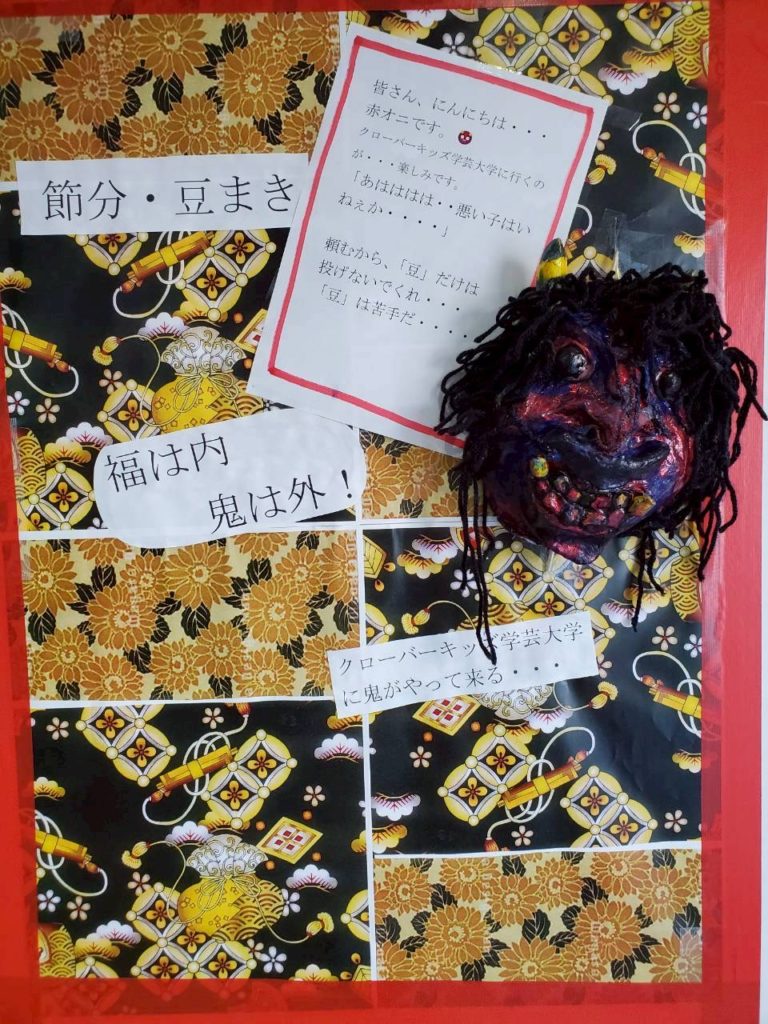 節分・豆まき
皆さん、にんにちは・・・
赤オニです。
クローバーキッズ学芸大学に行くの
が・・・楽しみです。
「あはははは・・悪い子はい
ねえか・・・・」
頼むから、「豆」だけは
投げないでくれ・・・
「豆」は苦手だ・・・・・
福は内
鬼は外!
クローバーキッズ学芸大学
に鬼がやって来る・・・